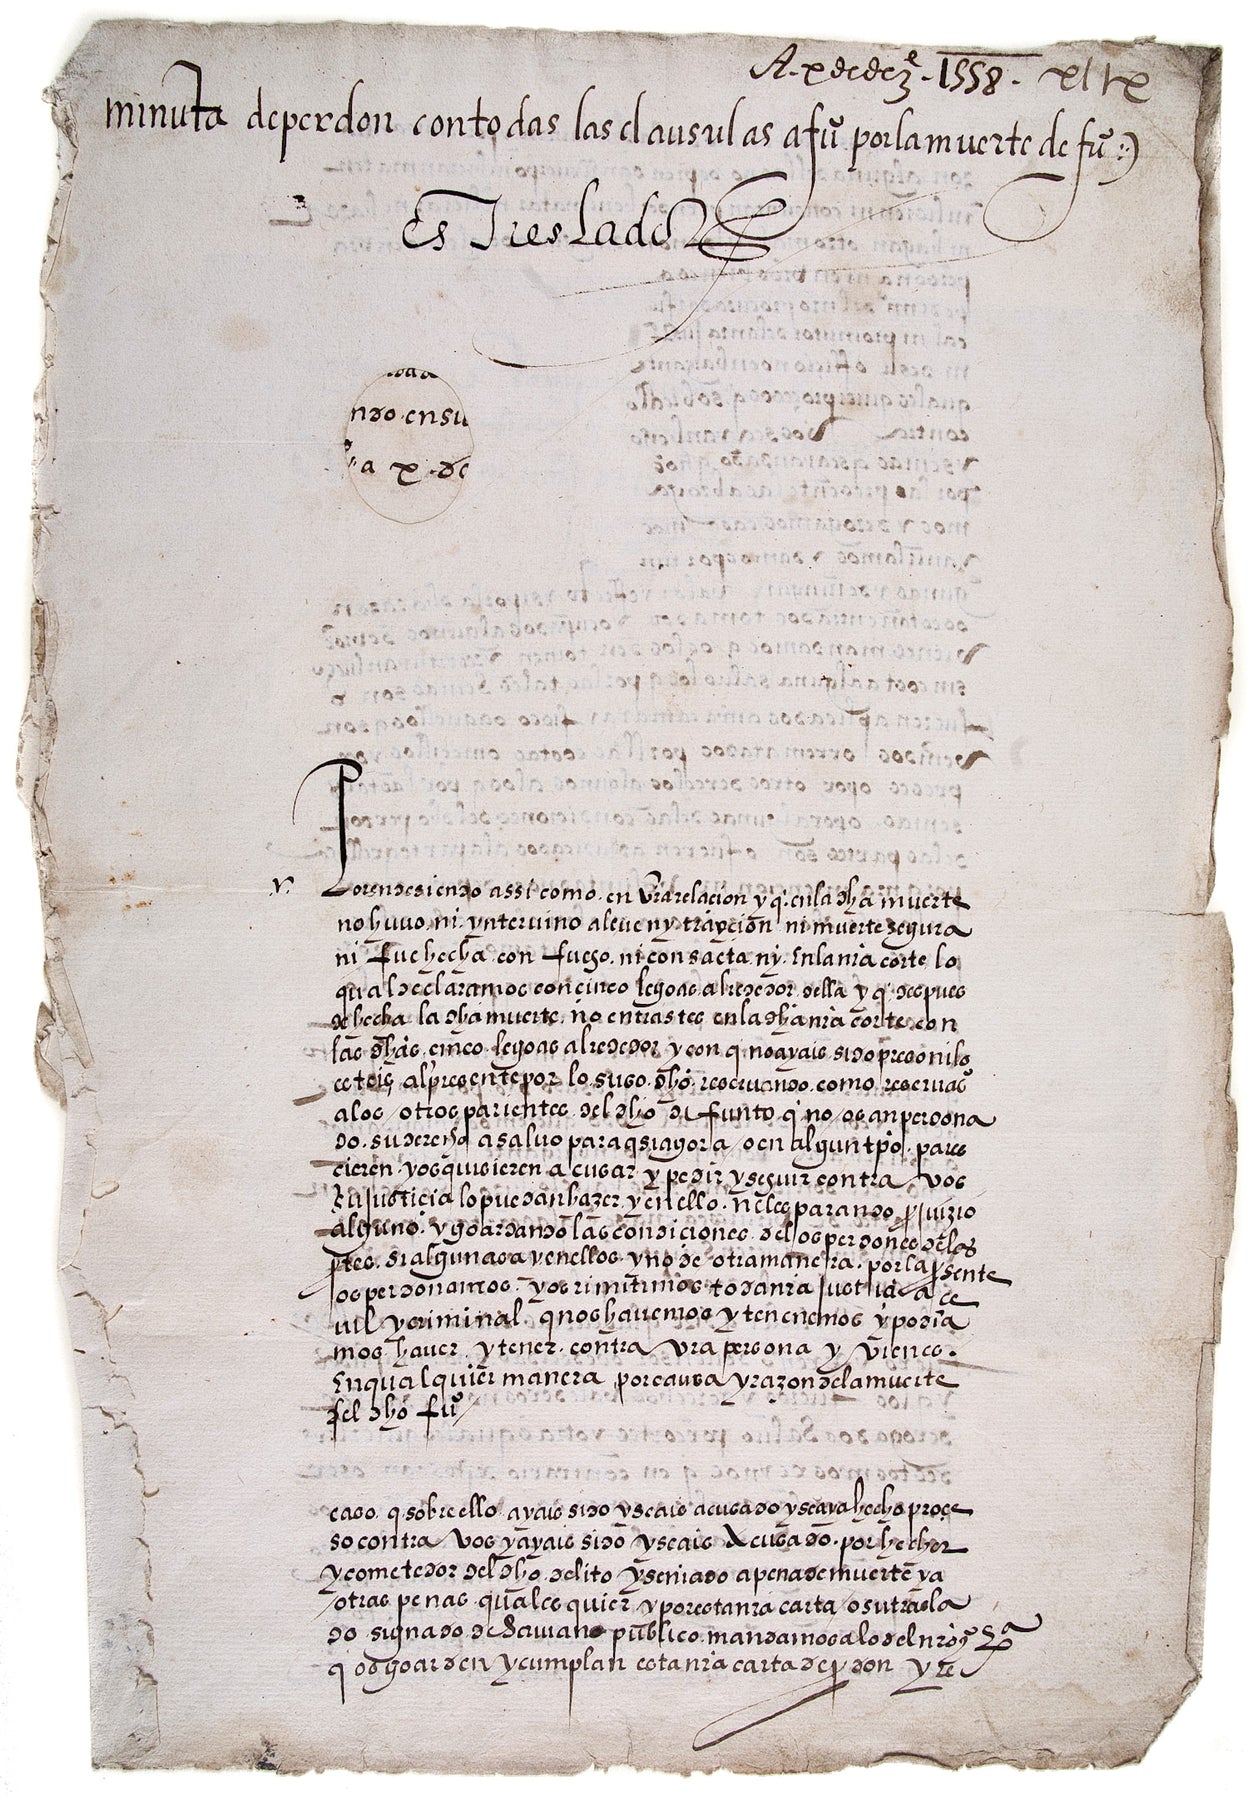 A. x de dezͤ. 1558. xlix
minuta de perdon con todas las clausulas a fuº por la muerte de fuº :)
es Treslado
ndo en su
a x de
v.
Porende siendo assi como en vra relacion y q en la dha muerte
no huuo ni yntervino aleue ny trayçion ni muerte segura
ni fue hecha con fuego ni con saeta ny En la nra corte lo
qual declaramos con cinco legoas alrededor della y q despues
de hecha la dha muerte no entrastes en la dha nra corte con
las dhas cinco legoas alrededor y con q no ayais sido preso ni lo
esteis al presente por lo suso dho reservando como reservaº
a los otros parientes del dho difunto q no os an perdona
do su derecho a saluo para q si agora o en algun tpo pares
cieren vos quisieren acusar y pedir y seguir contra vos
su justicia lo puedan hazer y en ello no les parando pjuizio
alguno y goardando las condiciones de los perdones de las
ptes si algunas ay en ellos y no de otra manera por la psente
os perdonamos y os rimitimos toda nra justicia ce
uil y criminal q nos havemos y tenenemos y podia
mos haver y tener contra vra persona y vienes
En qualquier manera por causa y razon de la muerte
del dho fuº
caso q sobre ello ayais sido y seais acusado y se aya hecho proçe
so contra vos y ayais sido y seais Acusado por hechor
y cometedor del dho delito y seniado a pena de muerte y a
otras penas quales quier y por esta nra carta o su trasla
do signado de Scriuano publico mandamos a los del nro
q os goarden y cumplan esta nra carta de pdon y re